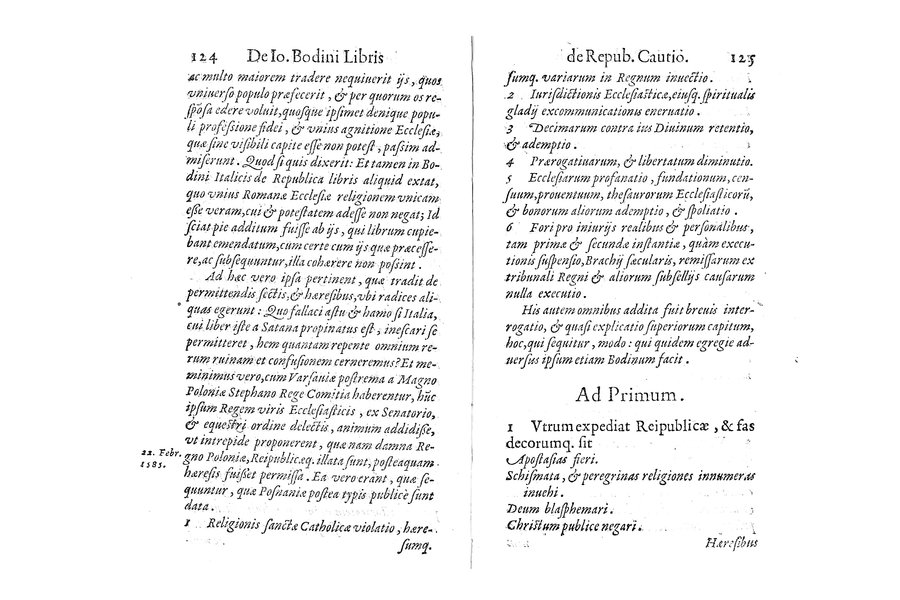 124 De Io. Bodini Libris
ac multo maiorem tradere nequiuerit ijs, quos
vniuerso populo præfecerit, & per quorum os re-
spōsa edere voluit, quosque ipsimet denique popu-
li professione fidei, & vnius agnitione Ecclesiæ,
quæ sine visibili capite esse non potest, passim ad-
miserunt. Quod si quis dixerit: Et tamen in Bo-
dini Italicis de Republica libris aliquid extat,
quo vnius Romanæ Ecclesiæ religionem vnicam
esse veram, cui & potestatem adesse non negat; Id
sciat pie additum fuisse ab ijs, qui librum cupie-
bant emendatum, cum certe cum ijs quæ præcesse-
re, ac subsequuntur, illa cohærere non possint.
Ad hæc vero ipsa pertinent, quæ tradit de
permittendis sectis, & hæresibus, vbi radices ali-
quas egerunt: Quo fallaci astu & hamo si Italia,
cui liber iste a Satana propinatus est, inescari se
permitteret, hem quantam repente omnium re-
rum ruinam et confusionem cerneremus? Et me-
minimus vero, cum Varsauiæ postrema a Magno
Poloniæ Stephano Rege Comitia haberentur, hūc
ipsum Regem viris Ecclesiasticis, ex Senatorio,
& equestri ordine delectis, animum addidisse,
vt intrepide proponerent, quæ nam damna Re-
22. Febr. gno Poloniæ, Reipublicæq. illata sunt, posteaquam
1585. hæresis fuisset permissa. Ea vero erant, quæ se-
quuntur, quæ Posnaniæ postea typis publicè sunt
data.
1 Religionis sanctæ Catholicæ violatio, hære-
sumq.
de Repub. Cautio. 125
sumq. variarum in Regnum inuectio.
2 Iurisdictionis Ecclesiasticæ, eiusq. spiritualis
gladij excommunicationis eneruatio.
3 Decimarum contra ius Diuinum retentio,
& ademptio.
4 Prærogatiuarum, & libertatum diminutio.
5 Ecclesiarum profanatio, fundationum, cen-
suum, prouentuum, thesaurorum Ecclesiasticorū,
& bonorum aliorum ademptio, & spoliatio.
6 Fori pro iniurijs realibus & personalibus,
tam primæ & secundæ instantiæ, quàm execu-
tionis suspensio, Brachij sæcularis, remissarum ex
tribunali Regni & aliorum subsellijs causarum
nulla executio.
His autem omnibus addita fuit breuis inter-
rogatio, & quasi explicatio superiorum capitum,
hoc, qui sequitur, modo: qui quidem egregie ad-
uersus ipsum etiam Bodinum facit.
Ad Primum.
1 Vtrum expediat Reipublicæ, & fas
decorumq. sit
Apostasias fieri.
Schismata, & peregrinas religiones innumeras
inuehi.
Deum blasphemari.
Christum publice negari.
Hæresibus